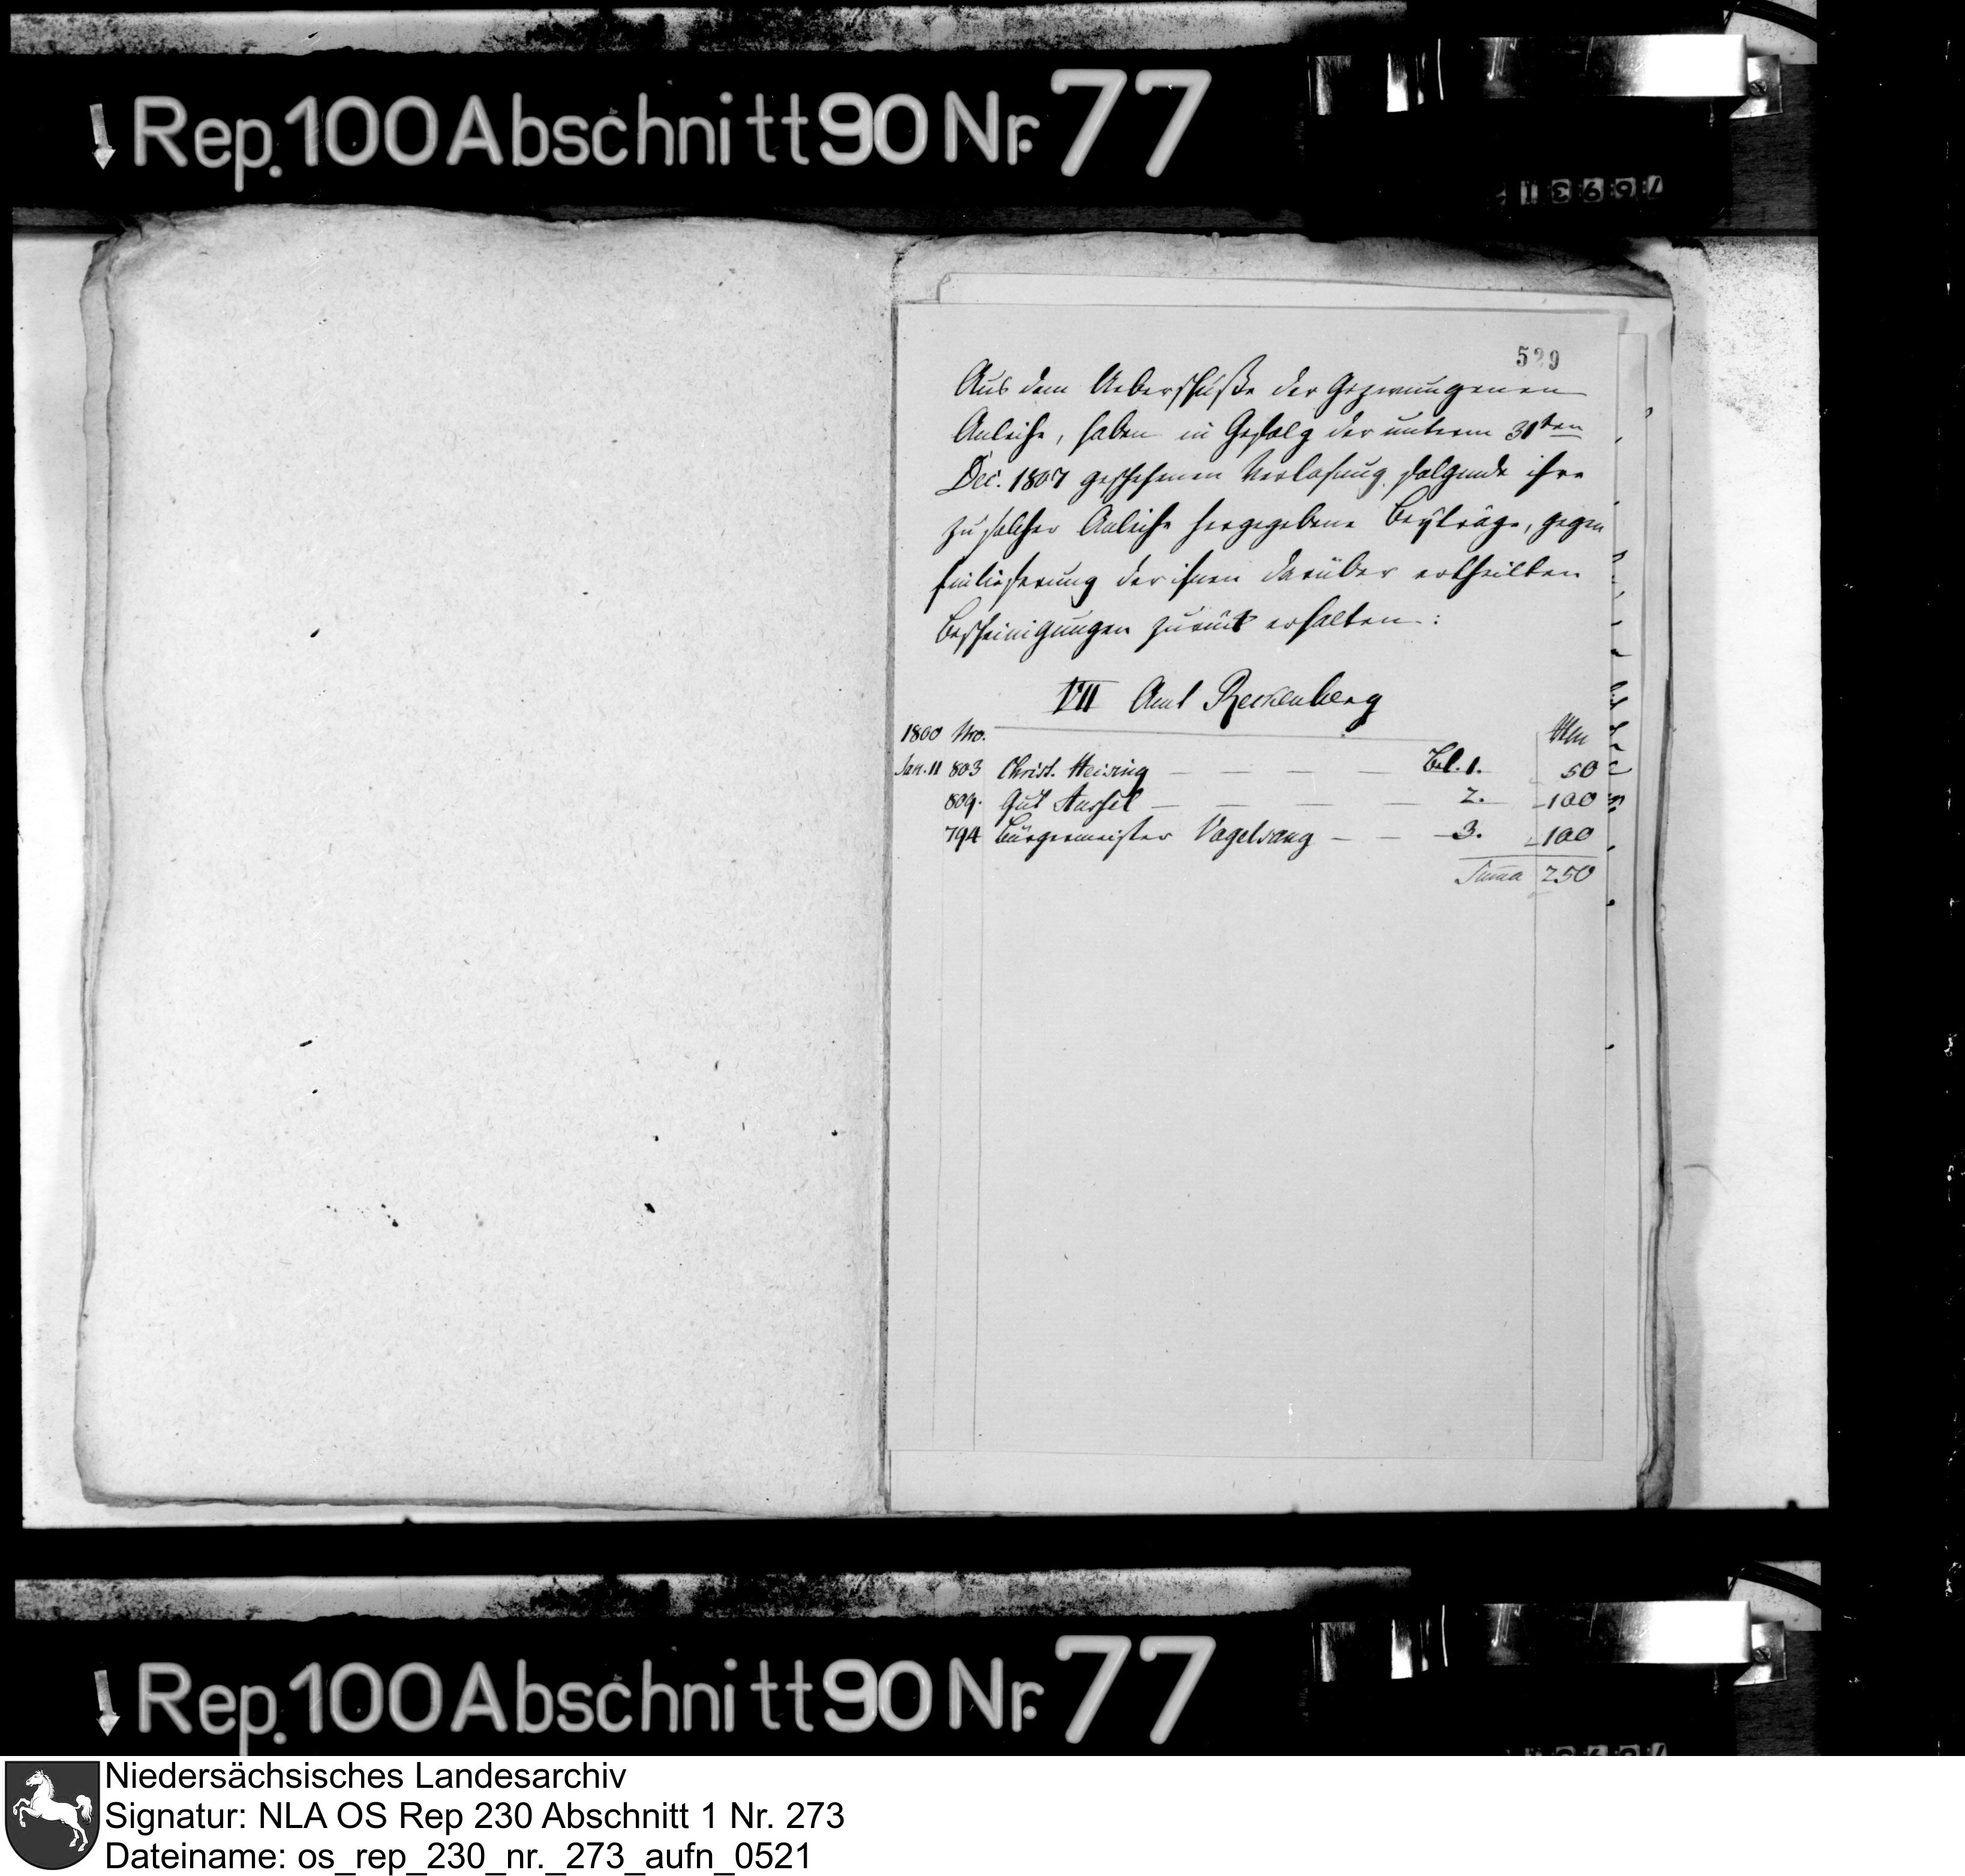 Rep. 100 Abschnitt 90 Nr. 77
529
Aus dem Ueberschuße der Gezwungenen
Anleihe, haben in Gefolg der unterm 31ten
Dec. 1807 geschehenen Verlosung folgende ihre
zu solcher Anleihe hergegebene Beyträge, gegen
Einlieferung der ihnen darüber ertheilten
Bescheinigungen zurück erhalten:
VII Amt Reckenberg
1800 Nro.
Jan. 11 803 Christ. Heising — — — — Bel. 1. 50
809. Gut Aussel — — — — 2. 100
794 Bürgermeister Vogelsang — — 3. 100
Suma 250
Rep. 100 Abschnitt 90 Nr. 77
Niedersächsisches Landesarchiv
Signatur: NLA OS Rep 230 Abschnitt 1 Nr. 273
Dateiname: os_rep_230_nr._273_aufn_0521